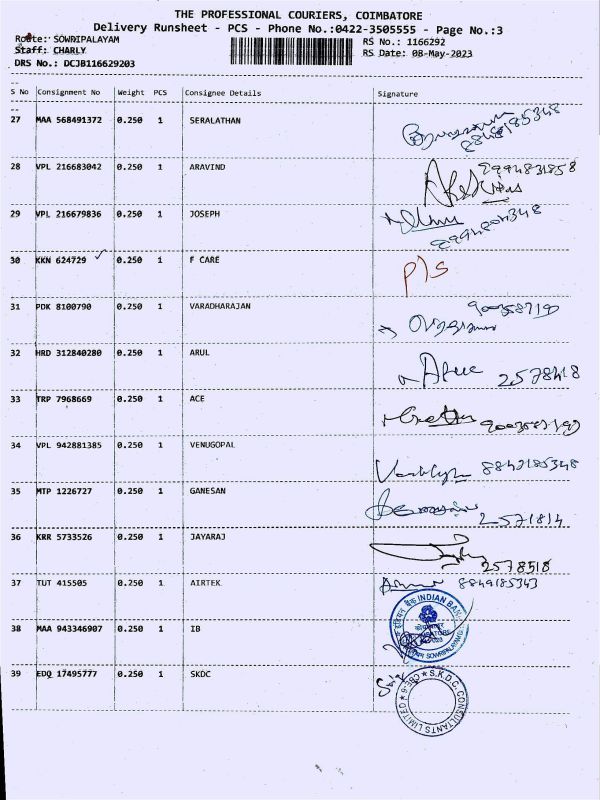 THE PROFESSIONAL COURIERS, COIMBATORE
Delivery Runsheet - PCS - Phone No.:0422-3505555 - Page No.:3
Route: SOWRIPALAYAM
RS No.: 1166292
Staff: CHARLY
RS Date: 08-May-2023
DRS No.: DCJB116629203
S No Consignment No Weight PCS Consignee Details Signature
27 MAA 568491372 0.250 1 SERALATHAN
28 VPL 216683042 0.250 1 ARAVIND 9994831858
29 VPL 216679836 0.250 1 JOSEPH
30 KKN 624729 0.250 1 F CARE P/S
31 PDK 8100790 0.250 1 VARADHARAJAN
32 HRD 312840280 0.250 1 ARUL Arul 2578418
33 TRP 7968669 0.250 1 ACE
34 VPL 942881385 0.250 1 VENUGOPAL
35 MTP 1226727 0.250 1 GANESAN 2571814
36 KRR 5733526 0.250 1 JAYARAJ 2578518
37 TUT 415505 0.250 1 AIRTEK 8849185343
38 MAA 943346907 0.250 1 IB
INDIAN BANK
SOWRIPALAYAM
39 EDQ 17495777 0.250 1 SKDC
S.K.D.C. CONSULTANTS LIMITED
CBE-6